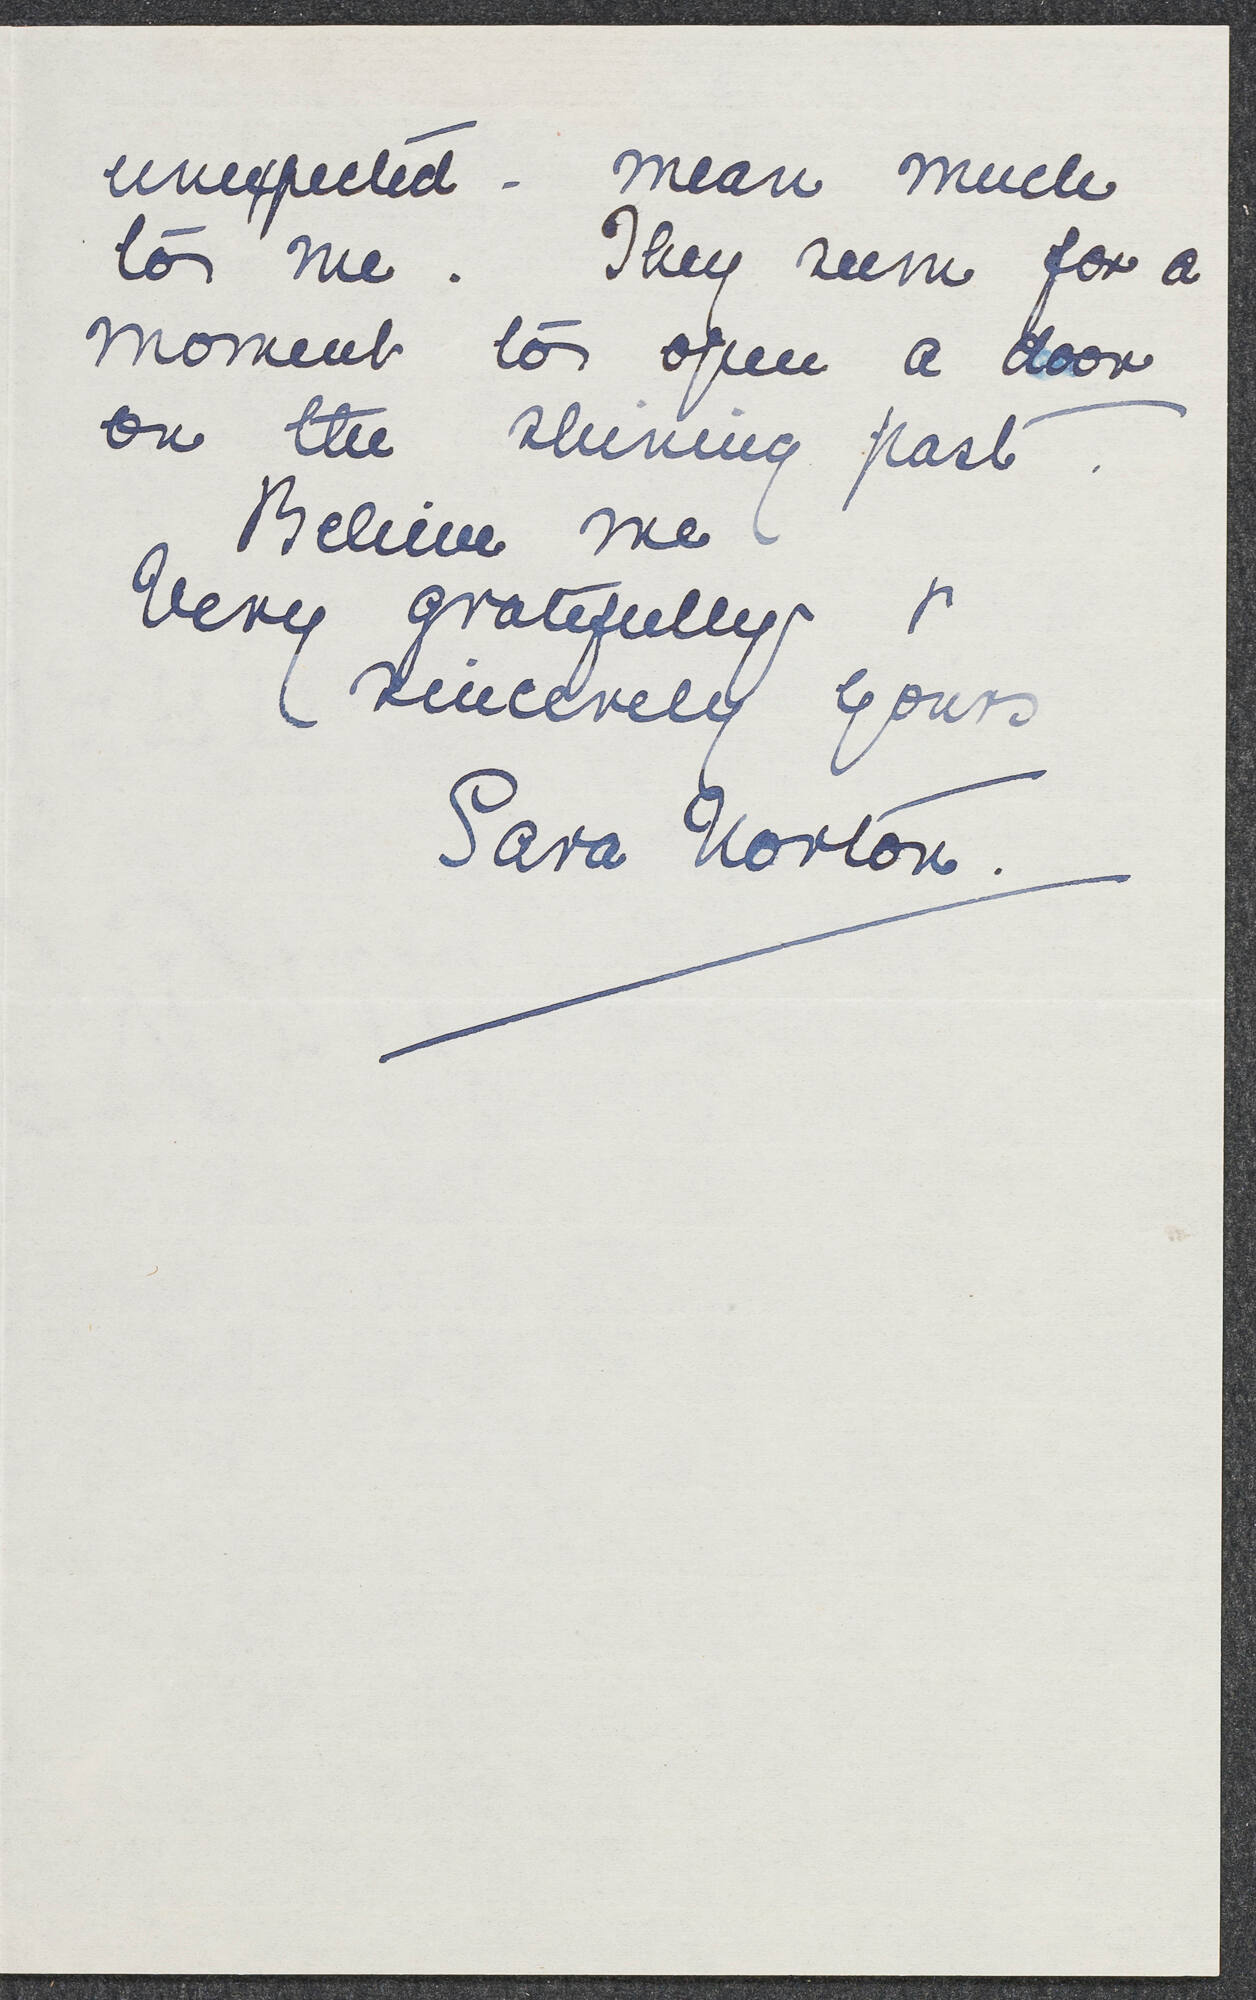 unexpected - mean much
to me. They seem for a
moment to open a door
on the shining past.
Believe me
Very gratefully &
sincerely yours
Sara Norton.